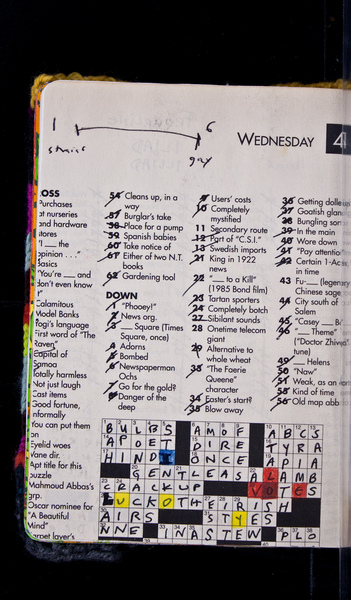 1 6
straight gay
WEDNESDAY 4
OSS
Purchases
at nurseries
and hardware
stores
"I ___ the
opinion . . ."
basics
"You're ___ and
don't even know
it"
Calamitous
Model Banks
Yogi's language
First word of "The
Raven"
Capital of
Samoa
Totally harmless
Not just laugh
Cast items
Good fortune,
informally
You can put them
on
Eyelid woes
Vane dir.
Apt title for this
puzzle
Mahmoud Abbas's
grp.
Oscar nominee for
"A Beautiful
Mind"
Carpet layer's
54 Cleans up, in a
way
57 Burglar's take
58 Place for a pump
59 Spanish babies
60 Take notice of
61 Either of two N.T.
books
62 Gardening tool
DOWN
1 "Phooey!"
2 News org.
3 ___ Square (Times
Square, once)
4 Adorns
5 Bombed
6 Newspaperman
Ochs
7 Go for the gold?
8 Danger of the
deep
9 Users' costs
10 Completely
mystified
11 Secondary route
12 Part of "C.S.I."
13 Swedish imports
21 King in 1922
news
22 "___ to a Kill"
(1985 Bond film)
23 Tartan sporters
24 Completely botch
27 Sibilant sounds
28 Onetime telecom
giant
29 Alternative to
whole wheat
33 "The Faerie
Queene"
character
34 Easter's start?
35 Blow away
36 Getting dolle
37 Goatish glan
38 Bungling sor
39 In the main
40 Wore down
41 "Pay attentio
42 Certain 1-Ac
in time
43 Fu-___ (legendary
Chinese sage
44 City south of
Salem
45 "Casey ___ B
46 "___ Theme"
("Doctor Zhivag
tune)
49 ___ Helens
50 "Now"
51 Weak, as an
55 Kind of time
56 Old map abb
BULBS AMOF ABCS
APDET DIRE TYRA
HINDI ONCE APIA
GENTLEASALAMB
CRACKUP VOTES
LUCKOTHEIRISH
AIRS STYES
NNE INASTEW PLO